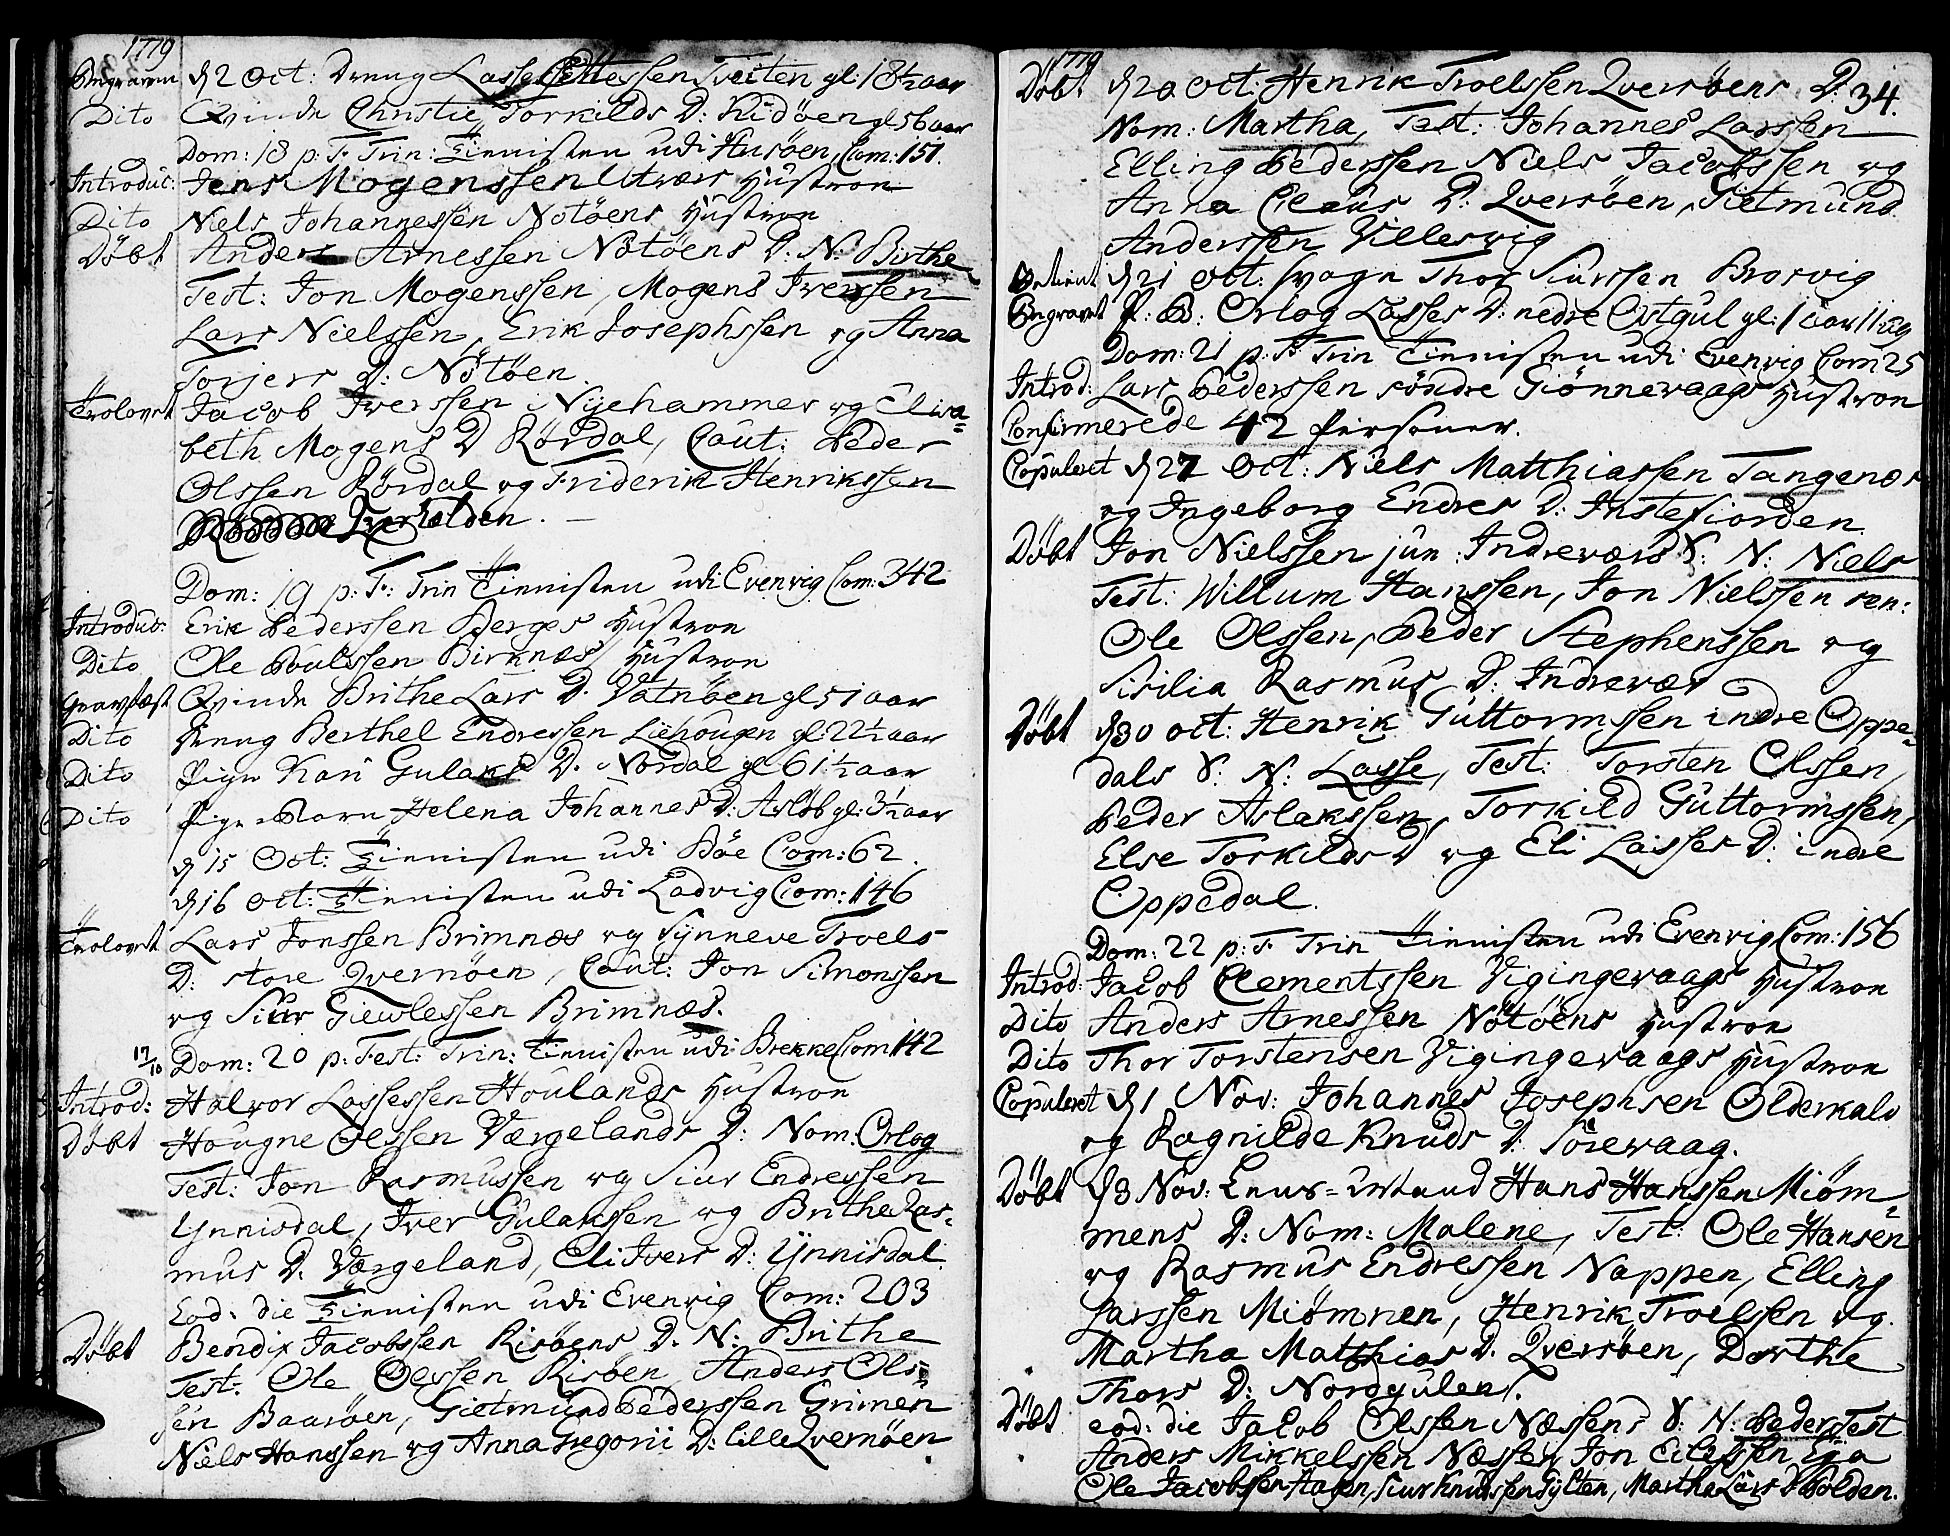 1779
Begraven d 2 Oct: Dreng Lasse Tveiten gl: 18½ aar
Dito Qvinde Christie Torkilds D: Ridöen gl 56 aar
Dom: 18 p: F: Trin: Tienisten udi Husöen, Com: 151.
Introduc: Jens Mogenssen Utvær Hustroe
Dito Niels Johannessen Notöens Hustroe
Döbt Anders Arnessen Nötöens D: N: Birthe
Test: Jon Mogenssen, Mogens Iverssen
Lars Nielssen, Erik Josephssen og Anna
Torjers D: Nötöen.
Trolovet Jacob Iverssen Nyehammer og Elisa=
beth Mogens D Rördal, Caut: Peder
Olssen Rördal og Friderik Henrikssen
Tverholden.
Dom: 19 p: F: Trin Tienisten udi Evenvig Com: 342
Introduc: Erik Pederssen Berges Hustroe
Dito Ole Poulssen Birknæs Hustroe
Gravfæst Qvinde Brithe Lars D. Vatnöen gl 51 aar
Dito Dreng Berthel Endressen Liehougen gl: 22½ aar
Dito Pige Kari Gulaks D. Nordal gl 61½ aar
Dito Pige=Barn Helena Johannes D: Aslöb gl: 3½ aar
d 15 Oct: Tienisten udi Böe Com: 62.
d 16 Oct: Tienisten udi Ladvig Com: 146
Trolovet Lars Jonssen Brimnæs og Synneve Troels
D: store Qvernöen, Caut: Jon Simonssen
og Siur Giewlessen Brimnæs.
17/10 Dom: 20 p: Fest: Trin: Tienisten udi Brekke Com 142
Introd: Halvor Lassessen Houlands Hustroe
Döbt Hougne Olssen Værgelands D: Nom: Orlog
Test: Jon Rasmussen og Siur Endressen
Ynnisdal, Iver Gulakssen og Brithe Ras=
mus D. Værgeland, Eli Ivers D: Ynnisdal
Eod: die Tienisten udi Evenvig Com: 203
Döbt Bendix Jacobssen Risöens D. N: Brithe
Test: Ole Olssen Risöen, Anders Ols=
sen Baaröen, Gietmund Pederssen Grinen
Niels Hanssen og Anna Gregorii D: lille Qvernöen
1779
34.
Döbt d 20 Oct: Henrik Troelssen Qversöens D:
Nom: Martha, Test: Johannes Larssen
Elling Pederssen Niels Jacobssen og
Anna Claus D: Qversöen, Gietmund
Anderssen Villesvig
d 21 Oct: Thor Siurssen Brosvig
Begravet P: B: Orlog Lasses D: nedre Ostgul gl: 1 aar 11 ug
Dom: 21 p: F: Trin Tienisten udi Evenvig Com 25
Introd: Lars Pederssen söndre Giönnevaags Hustroe
Confirmerede 42 Personer.
Copuleret d 27 Oct: Niels Matthiassen Tangenæs
og Ingeborg Endres D: Instefiorden
Döbt Jon Nielssen jun Indreværs S: N: Niels
Test: Willum Hanssen, Jon Nielssen sen:
Ole Olssen, Peder Stephenssen og
Sisilia Rasmus D: Indrevær
Döbt d 30 Oct: Henrik Guttormssen indre Oppe=
dals S: N: Lasse, Test: Torsten Olssen,
Peder Aslakssen, Torkild Guttormssen,
Else Torkilds D og Eli Lasses D: indre
Oppedal.
Dom: 22 p: F Trin Tienisten udi Evenvig Com: 156
Introd: Jacob Clementssen Vigingevaags Hustroe
Dito Anders Arnessen Nötöens Hustroe
Dito Thor Torstensen Vigingevaags Hustroe
Copuleret d 1 Nov: Johannes Josephsen Olderkals
og Ragnilde Knuds D: Torevaag.
Döbt d 3 Nov: Hans Hanssen Miöm=
mens D: Nom: Malene, Test: Ole Hansen
og Rasmus Endressen Nappen, Elling
Larssen Miömnen, Henrik Troelssen og
Martha Matthias D. Qversöen, Dorthe
Thors D: Nordgulen.
Döbt eod: die Jacob Olssen Næssens S: N: Peder Test
Anders Mikkelssen Næssen, Jon Eilefssen Eja
Ole Jacobssen Hagen, Siur Knudssen Sylten, Martha Lars D Holden.